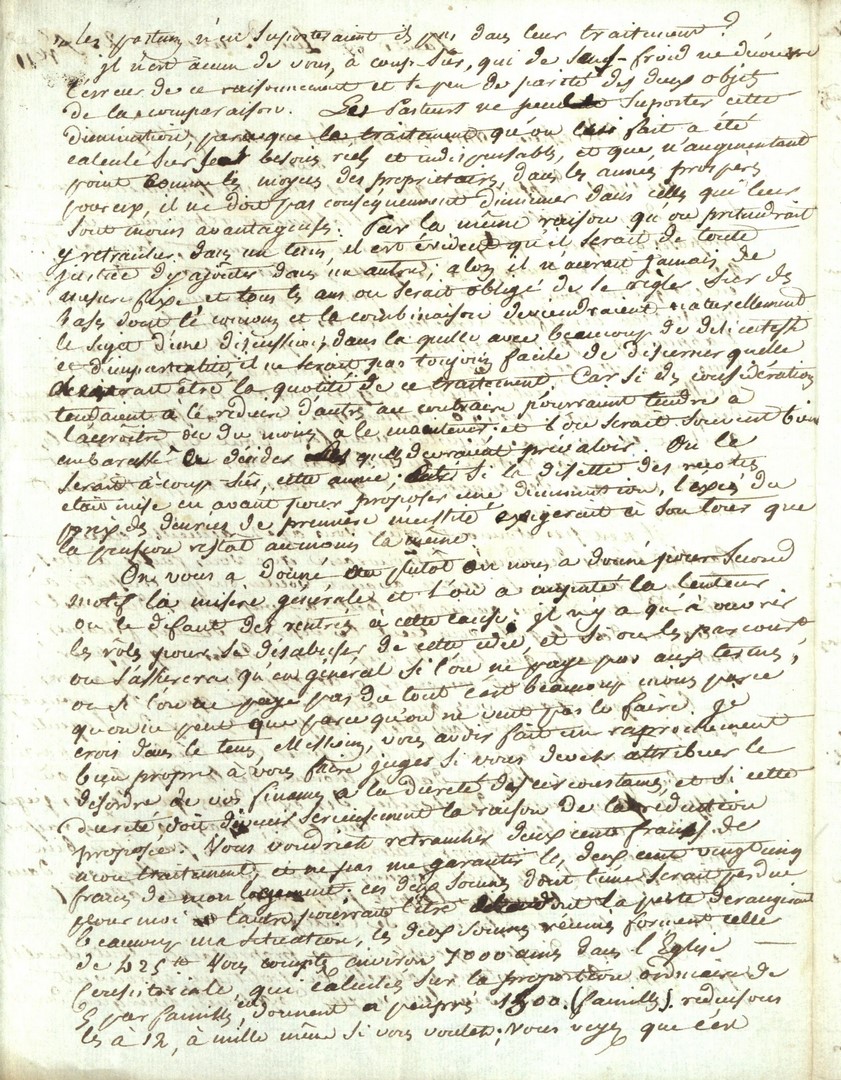 les pasteurs n'en suporteraient ils pas dans leur traitement ?
il n'est aucun de vous, à coup-sûr, qui de sang-froid ne découvre
l'erreur de ce raisonnement et le peu de parité des deux objets
de la comparaison. Les Pasteurs ne peuvent suporter cette
diminution, parceque le traitement qu'on leur fait a été
calculé sur leurs besoins réels et indispensables, et que n'augmentant
point comme les moyens des propriétaires, dans les années prosperes
pour eux, il ne doit pas conséquemment diminuer dans celles qui leur
sont moins avantageuses. Par la même raison qu'on prétendrait
y retrancher dans un tems, il est évident qu'il serait de toute
justice d'y ajouter dans un autre; alors il n'aurait jamais de
mesure fixe et tous les ans on serait obligé de le régler sur des
bases dont le et la combinaison deviendraient naturellement
le sujet d'une discussion, dans la quelle avec beaucoup de délicatesse
et d'impartialité, il ne serait pas toujours facile de discerner quelle
devrait être la quotité de ce traitement. Car si des considérations
tendaient à le réduire d'autres au contraire pourraient tendre à
l'accroître ou du moins à le maintenir et l'on serait souvent bien
embarassé de décider les quelles devraient prévaloir. On le
serait à coup-sûr, cette année; si la disette des recoltes
était mise en avant pour proposer une diminution, l'excès du
prix des denrées de première nécessité exigerait à son tour que
la pension restât au moins la même.
On vous a donné ou plutôt on nous a donné pour second
motif la misère générale et l'on a imputé la lenteur
ou le défaut des rentrées à cette cause; il n'y a qu'à ouvrir
les rôles pour se désabuser de cette idée, et si on les parcourt
on s'assurera qu'en général si l'on ne paye pas aux termes,
ou si l'on ne paye pas du tout c'est beaucoup moins parce
qu'on ne peut que parce qu'on ne veut pas le faire. Je
crois dans le tems, Messieurs, vous avoir fait un raprochement
bien propre à vous faire juger si vous devez attribuer le
désordre de vos finances à la dureté des circonstances, et si cette
dureté doit devenir sérieusement la raison de la réduction
proposée. Vous voudriez retrancher deux cents francs de
mon traitement, et ne pas me garantir les deux cent vingt cinq
francs de mon logement, ces deux sommes dont l'une serait perdue
pour moi et l'autre pourrait l'être dont la perte dérangerait
beaucoup ma situation, les deux sommes réunies forment celle
de 425 Vous comptez environ 7000 ames dans l'Eglise
Consistoriale, qui calculées sur la proportion ordinaire de
5 par famille, donnent à peu près 1500 (familles). réduisons
les à 12, à mille même si vous voulez; vous voyez que c'est